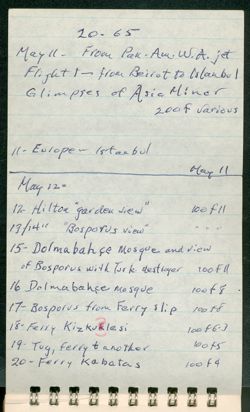 20-65
May 11- From Pan. Am. W.A. jet
Flight 1 - from Beirut to Istanbul
Glimpses of Asia Minor
200f various
11- Europe- Istanbul
May 11
May 12-
12- Hilton "garden view" 100 f 11
13/14" "Bosporus view" " " "
15- Dolmabahçe Mosque and view
of Bosporus with Turk. destroyer 100 f 11
16. Dolmabahçe Mosque 100 f 8
17- Bosporus from Ferry slip 100 f 8
18- Ferry Kizkulasi 100 f 6.3
?
19- Tug, ferry & another 100 f 5
20- Ferry Kabatas 100 f 4